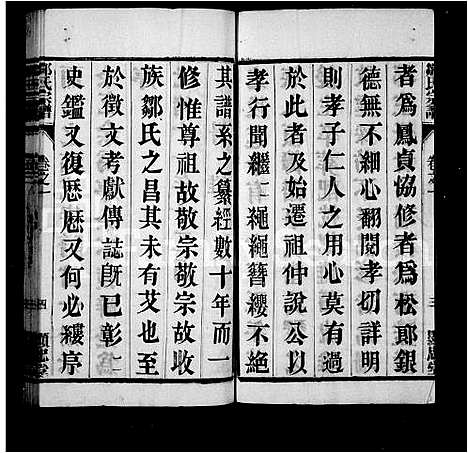 者爲鳳貞恊修者爲松郎銀
德無不細心翻閱孝切詳明
則孝子仁人之用心莫有過
於此者及始遷祖仲說公以
孝行聞繼繼繩繩簪纓不絶
其譜系之纂經數十年而一
修惟尊祖故敬宗敬宗故收
族鄒氏之昌其未有艾也至
於徵文考獻傳誌旣已彰彰
史鑑又復歷歷又何必縷序
鄒氏宗譜
卷之一